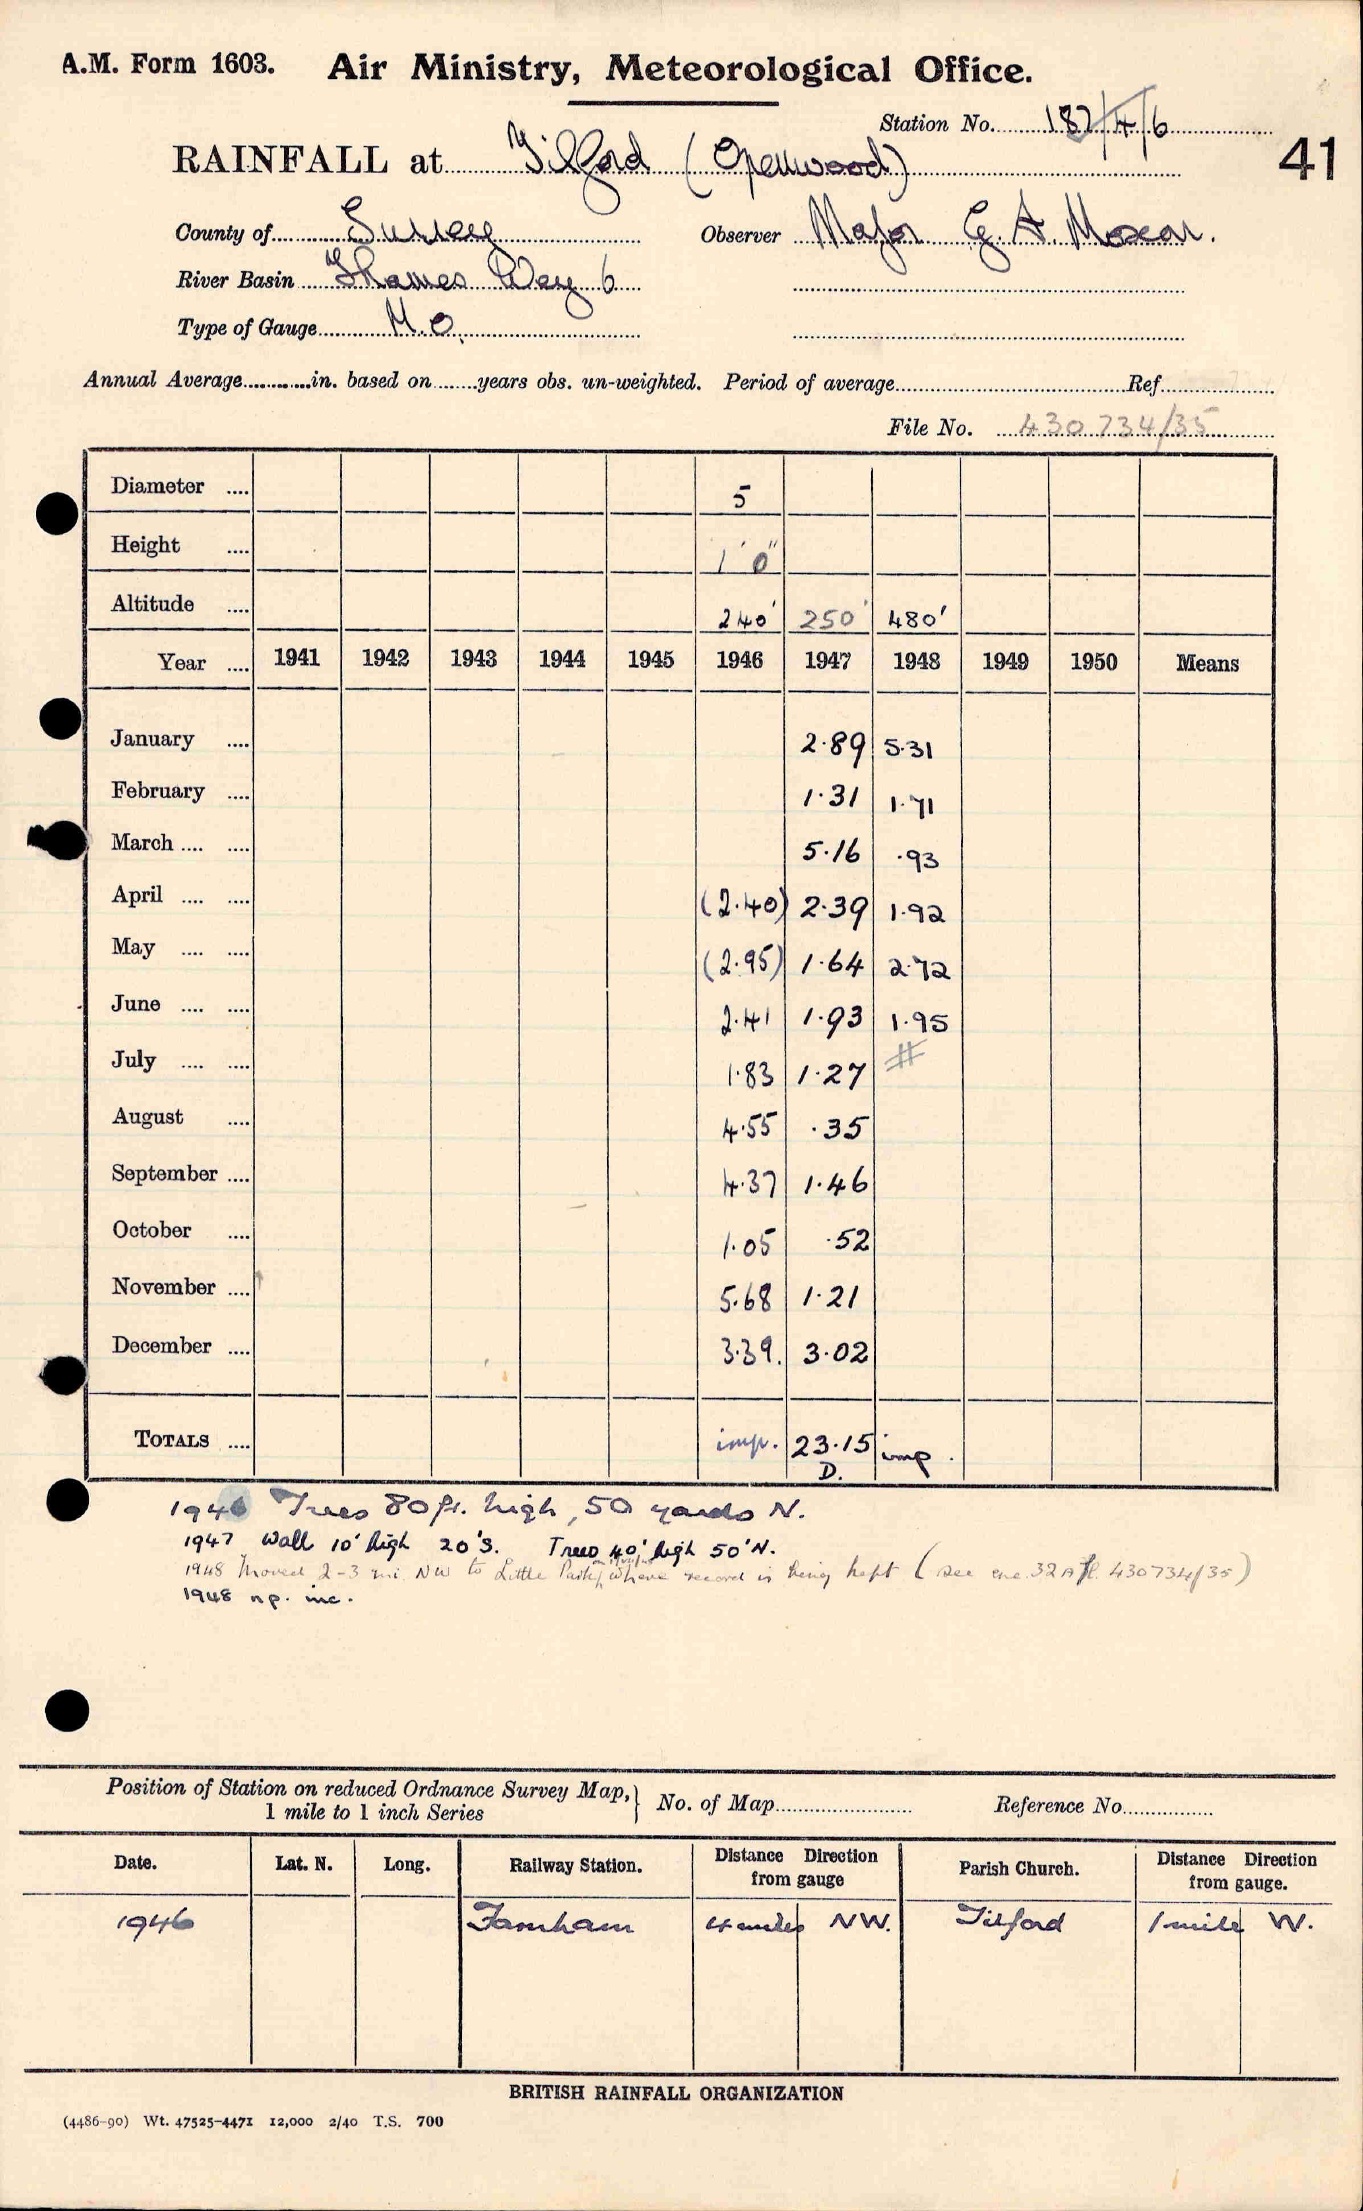 A.M. Form 1603. Air Ministry, Meteorological Office.
Station No. 187/4/6
41
RAINFALL at Tilford (Openwood)
County of Surrey Observer Major G. A. Moxon.
River Basin Thames Wey 6
Type of Gauge M.O.
Annual Average............in. based on.......years obs. un-weighted. Period of average.......... Ref..........
File No. 430734/35
Diameter .... 5
Height .... 1' 0"
Altitude .... 240' 250' 480'
Year .... 1941 1942 1943 1944 1945 1946 1947 1948 1949 1950 Means
January .... 2.89 5.31
February .... 1.31 1.71
March .... .... 5.16 .93
April .... .... (2.40) 2.39 1.92
May .... .... (2.95) 1.64 2.72
June .... .... 2.41 1.93 1.95
July .... .... 1.83 1.27 #
August .... 4.55 .35
September .... 4.37 1.46
October .... 1.05 .52
November .... 5.68 1.21
December .... 3.39. 3.02
TOTALS .... imp. 23.15 imp.
D.
1946 Trees 80 ft. high, 50 yards N.
1947 Wall 10' high 20'S. Trees 40' high 50'N.
1948 Moved 2-3 mi. NW to Little Park, where record is being kept (see enc. 32A 430734/35)
1948 n.p. inc.
Position of Station on reduced Ordnance Survey Map, } No. of Map.......... Reference No..........
1 mile to 1 inch Series
Date. Lat. N. Long. Railway Station. Distance Direction from gauge Parish Church. Distance Direction from gauge.
1946 Farnham 4 miles NW. Tilford 1 mile W.
BRITISH RAINFALL ORGANIZATION
(4486-90) Wt. 47525-4471 12,000 2/40 T.S. 700